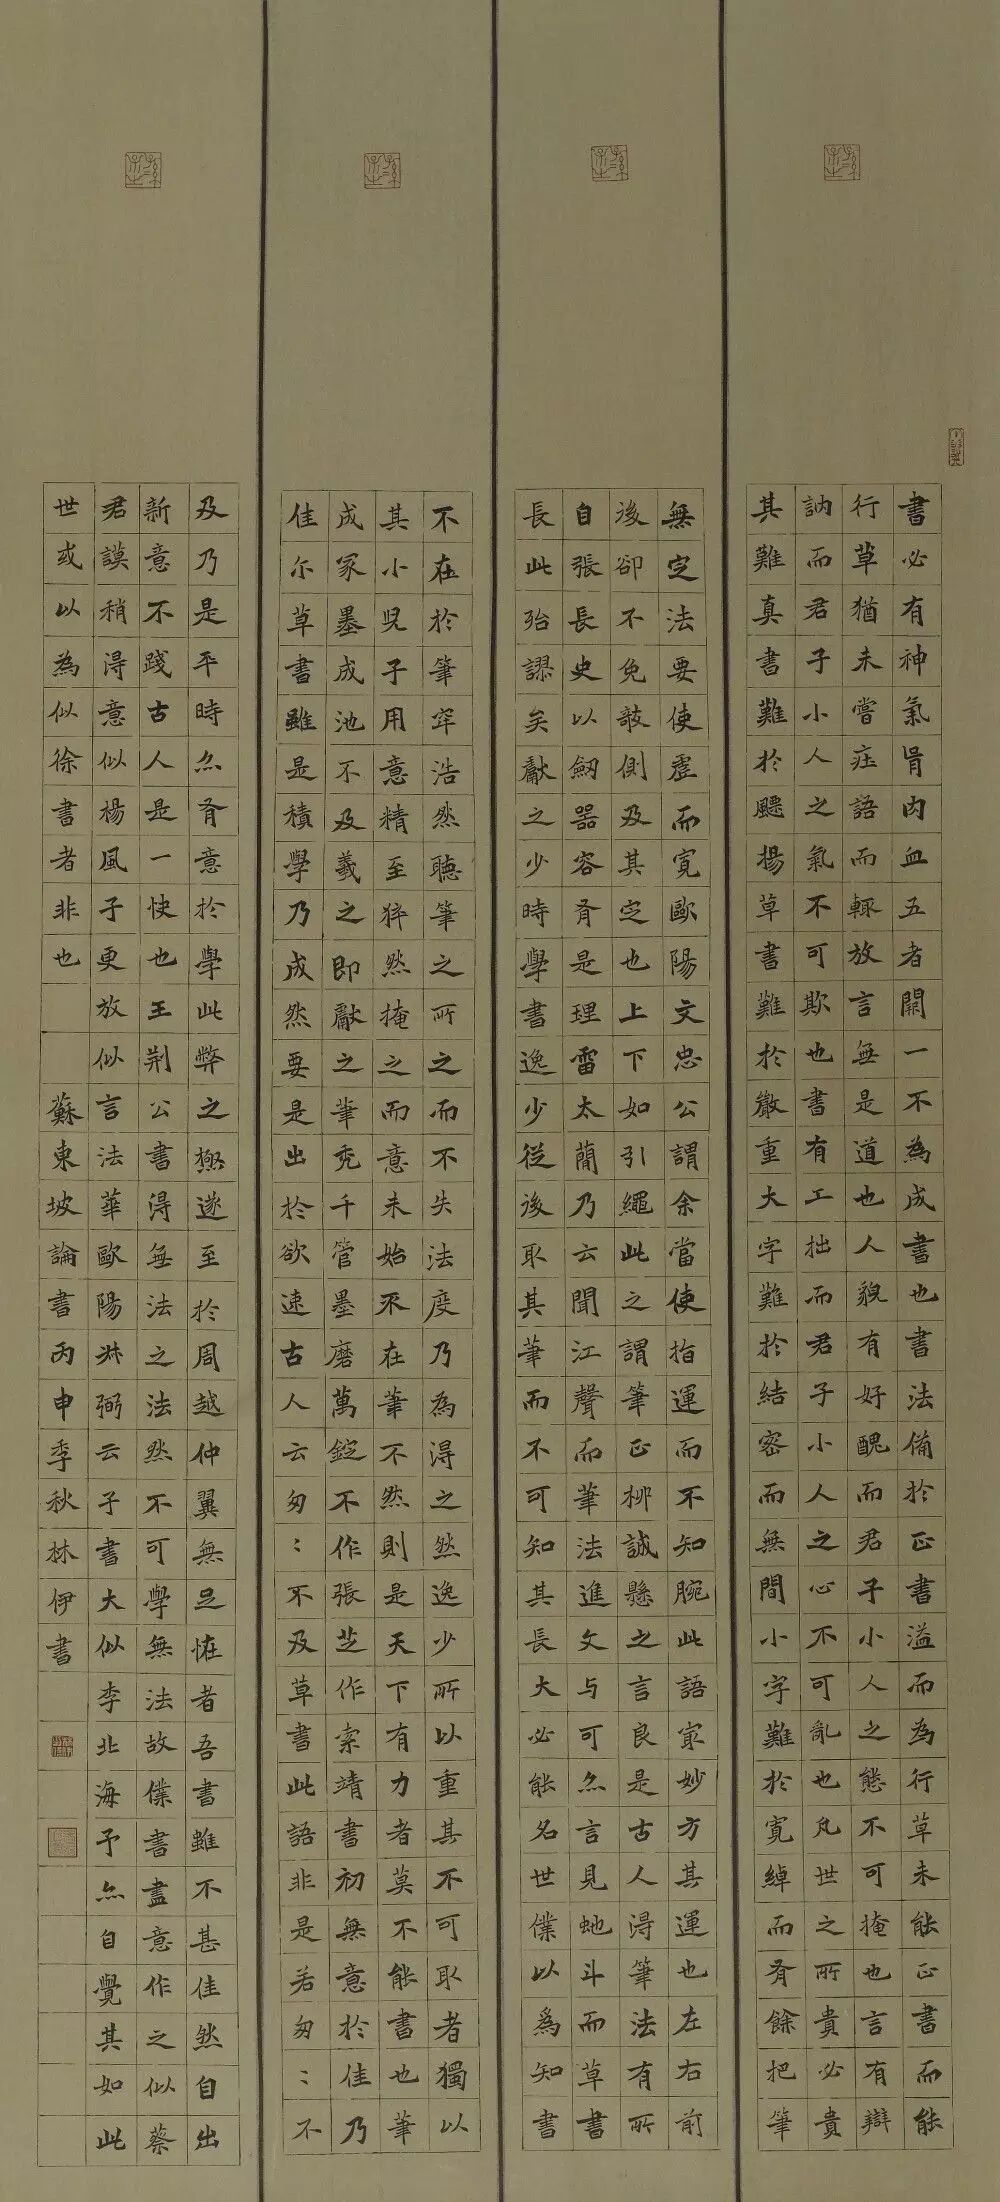 書必有神氣骨肉血五者闕一不為成書也書法備於正書溢而為行草未能正書而能
行草猶未嘗莊語而輒放言無是道也人貌有好醜而君子小人之態不可掩也言有辯
訥而君子小人之氣不可欺也書有工拙而君子小人之心不可亂也凡世之所貴必貴
其難真書難於飄揚草書難於嚴重大字難於結密而無間小字難於寬綽而有餘把筆
無定法要使虛而寬歐陽文忠公謂余當使指運而不知腕此語最妙方其運也左右前
後卻不免敧側及其定也上下如引繩此之謂筆正柳誠懸之言良是古人得筆法有所
自張長史以劒器容有是理雷太簡乃云聞江聲而筆法進文与可亦言見虵斗而草書
長此殆謬矣獻之少時學書逸少從後取其筆而不可知其長大必能名世僕以為知書
不在於筆牢浩然聽筆之所之而不失法度乃為得之然逸少所以重其不可取者獨以
其小兒子用意精至猝然掩之而意未始不在筆不然則是天下有力者莫不能書也筆
成冢墨成池不及羲之即獻之筆禿千管墨磨萬錠不作張芝作索靖書初無意於佳乃
佳尒草書雖是積學乃成然要是出於欲速古人云匆〻不及草書此語非是若匆〻不
及乃是平時亦有意於學此弊之極遂至於周越仲翼無足恠者吾書雖不甚佳然自出
新意不踐古人是一快也王荆公書得無法之法然不可學無法故僕書盡意作之似蔡
君謨稍得意似楊風子更放似言法華歐陽叔弼云子書大似李北海予亦自覺其如此
世或以為似徐書者非也 蘇東坡論書丙申季秋林伊書